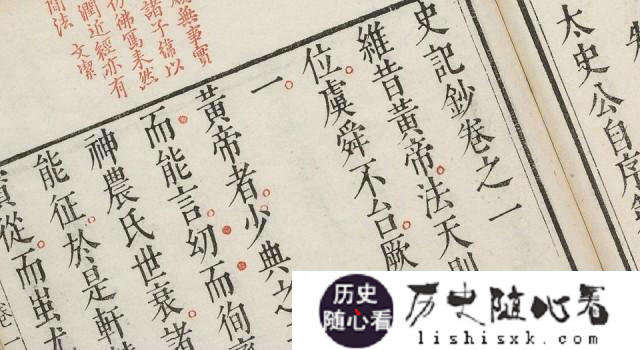 太史公自序
史記鈔卷之一
維昔黃帝法天則
位虞舜不台厥
一
黃帝者少典之
而能言幼而徇
神農氏世衰諸
能征於是軒
從而蚩尤
卷一
無事實
諸子偉以
寫未然
潤近經亦有
簡法
历史
随心看
历史随心看
lishisxk.com